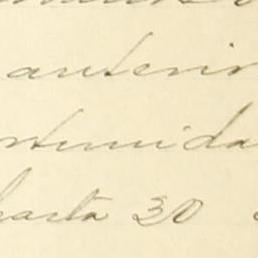 anterior
rtunida
hasta 30